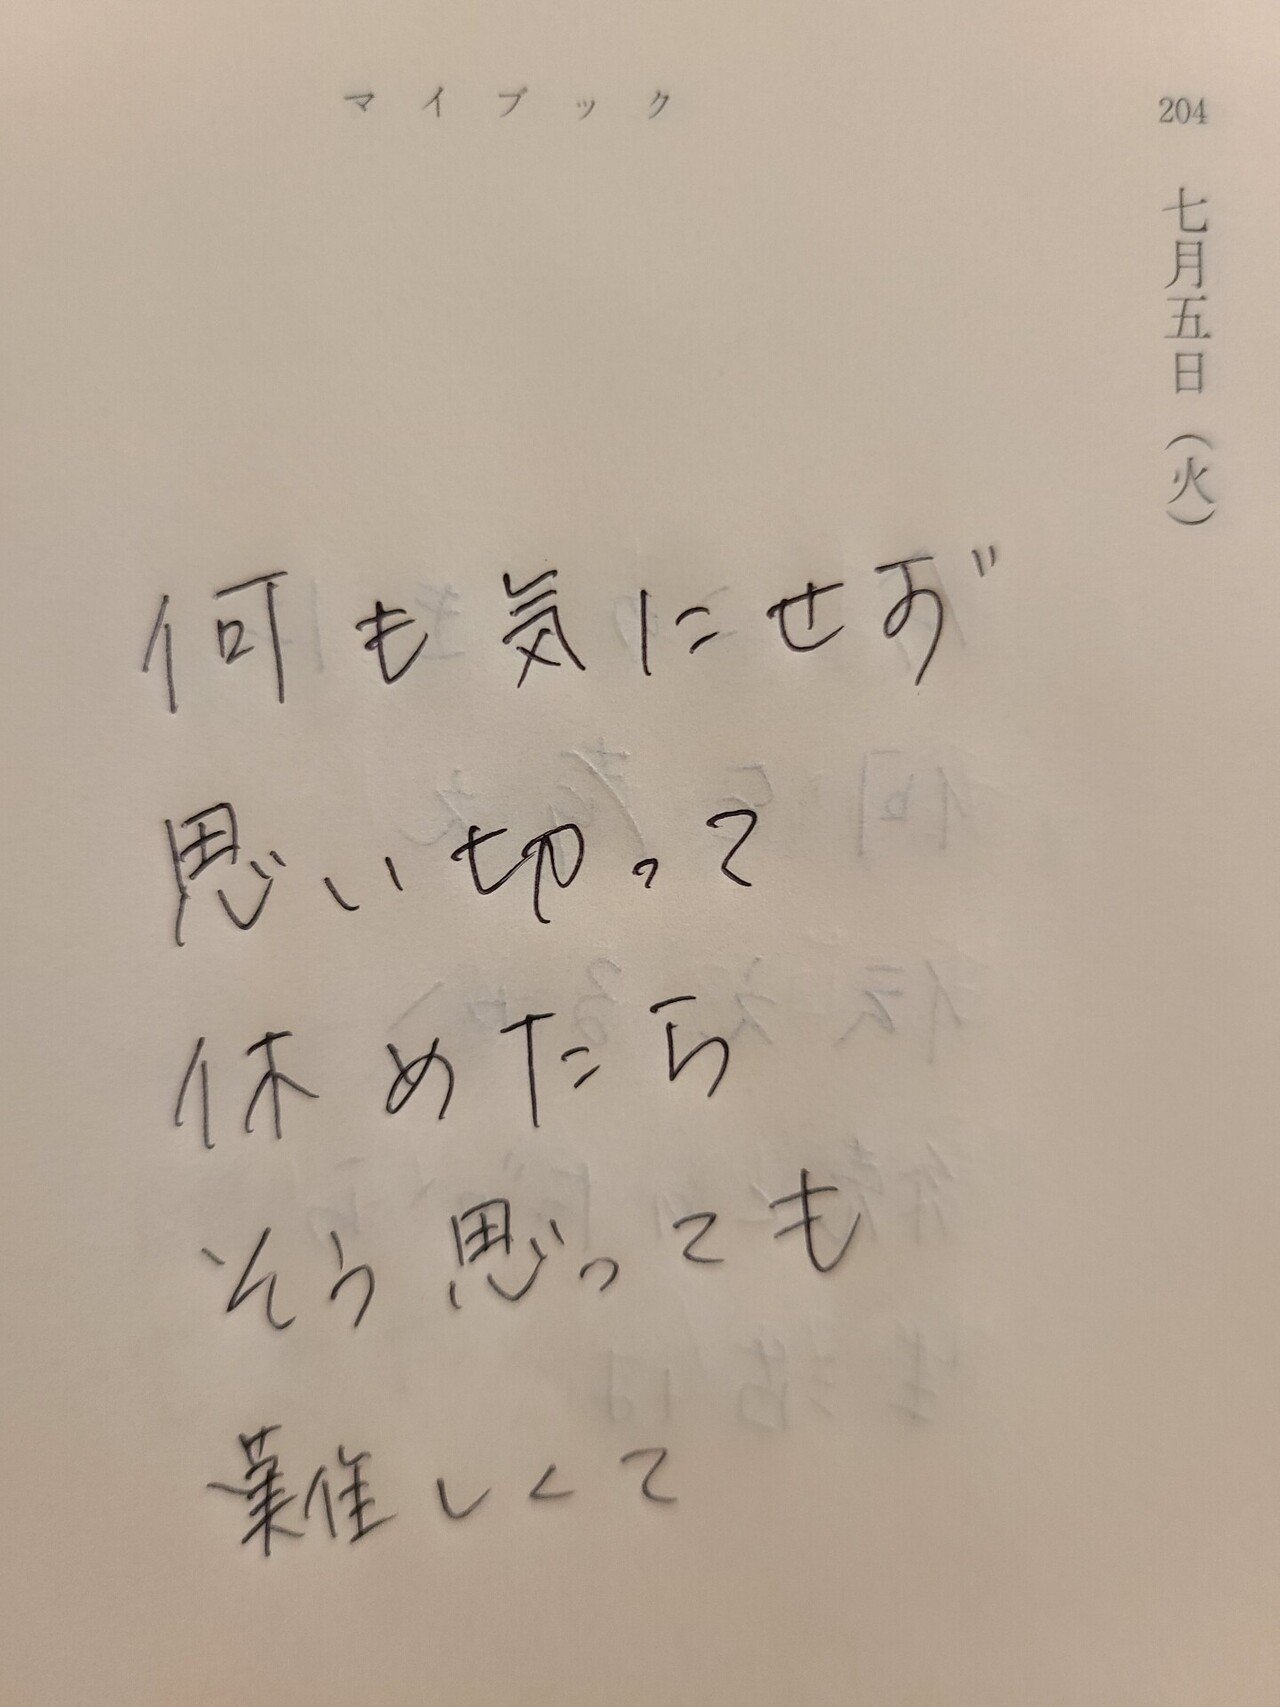 マイブック
204
七月五日(火)
何も気にせず
思い切って
休めたら
そう思っても
難しくて